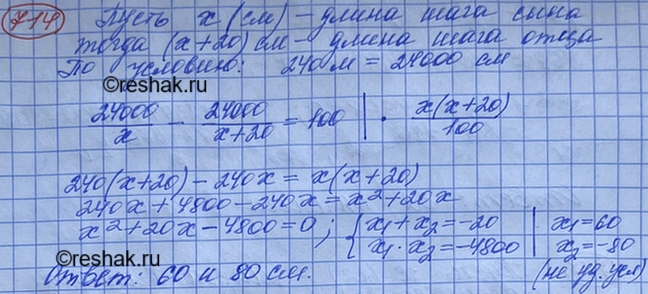 714
Пусть x (см) – длина шага сына
тогда (x+20) см – длина шага отца
По условию: 240 м = 24000 см
©reshak.ru
24000/x - 24000/(x+20) = 100 | · x(x+20)/100
240(x+20) - 240x = x(x+20)
240x + 4800 - 240x = x² + 20x
x² + 20x - 4800 = 0; { x₁ + x₂ = -20 | x₁ = 60
x₁ · x₂ = -4800 | x₂ = -80
©reshak.ru
Ответ: 60 и 80 см. (не уд. усл)